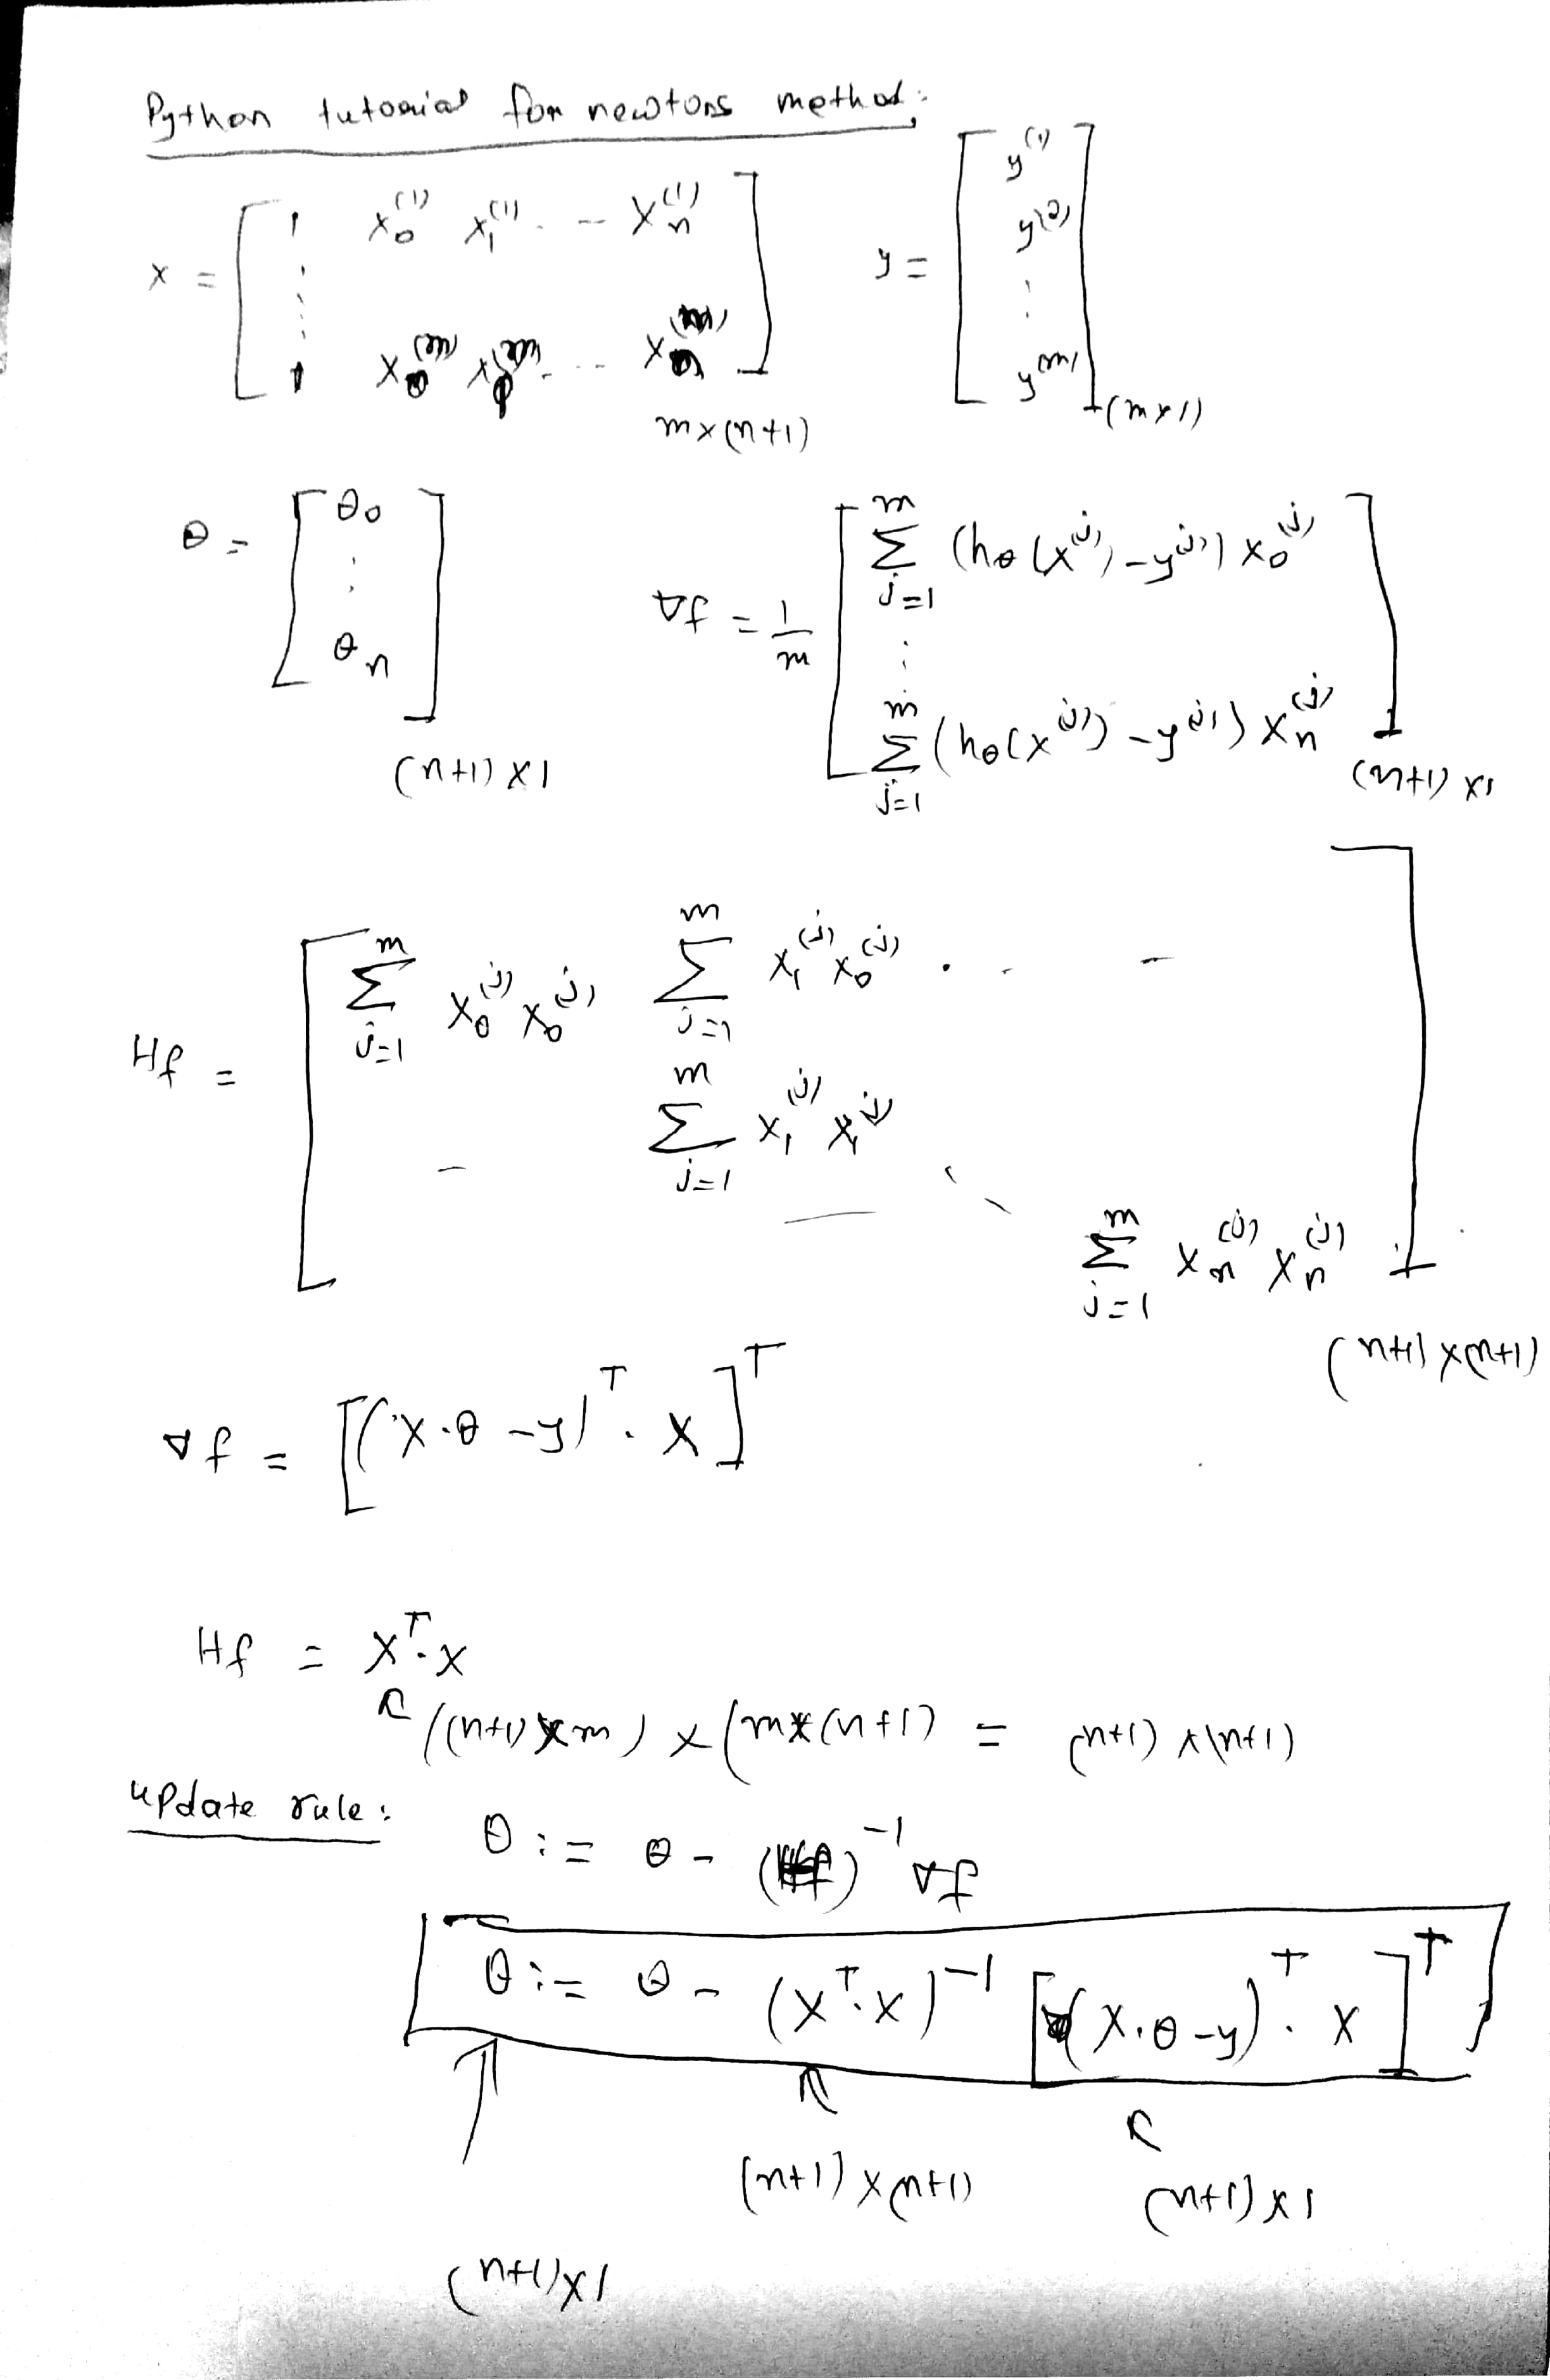 Python tutorial for newtons method:
x = [ 1 x₀⁽¹⁾ x₁⁽¹⁾ . -- xₙ⁽¹⁾
⋮
1 x₀⁽ᵐ⁾ x₁⁽ᵐ⁾ . -- xₙ⁽ᵐ⁾ ] m×(n+1)
y = [ y⁽¹⁾
y⁽²⁾
⋮
y⁽ᵐ⁾ ] (m×1)
θ = [ θ₀
⋮
θₙ ] (n+1)×1
∇f = 1/m [ Σⱼ₌₁ᵐ (hθ(x⁽ʲ⁾) - y⁽ʲ⁾) x₀⁽ʲ⁾
⋮
Σⱼ₌₁ᵐ (hθ(x⁽ʲ⁾) - y⁽ʲ⁾) xₙ⁽ʲ⁾ ] (n+1)×1
Hf = [ Σⱼ₌₁ᵐ x₀⁽ʲ⁾ x₀⁽ʲ⁾ Σⱼ₌₁ᵐ x₁⁽ʲ⁾ x₀⁽ʲ⁾ . - -
- Σⱼ₌₁ᵐ x₁⁽ʲ⁾ x₁⁽ʲ⁾
Σⱼ₌₁ᵐ xₙ⁽ʲ⁾ xₙ⁽ʲ⁾ ] (n+1)×(n+1)
∇f = [(X·θ - y)ᵀ · X]ᵀ
Hf = Xᵀ·X
((n+1)×m) × (m×(n+1) = (n+1)×(n+1)
update rule:
θ := θ - (Hf)⁻¹ ∇f
θ := θ - (Xᵀ·X)⁻¹ [(X·θ - y)ᵀ · X]ᵀ
(n+1)×(n+1) (n+1)×1
(n+1)×1